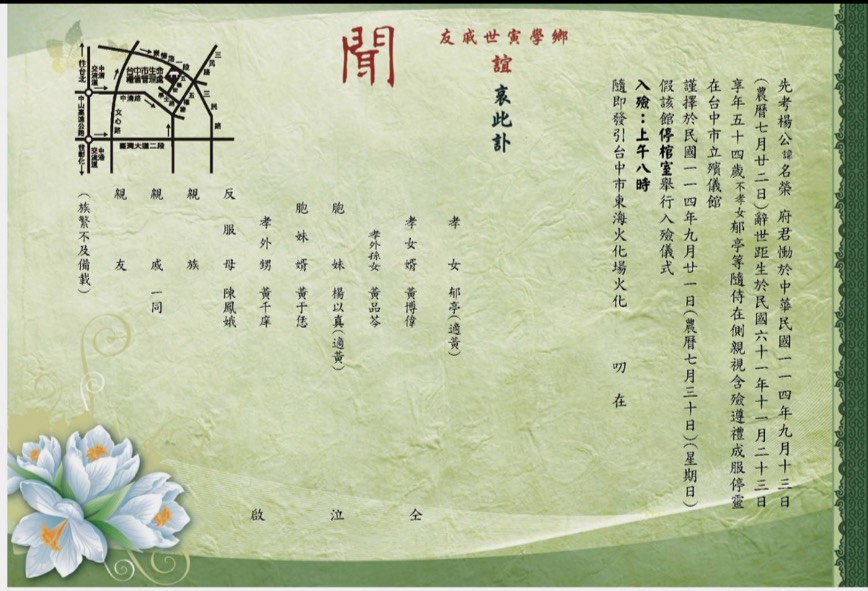 先考楊公諱名榮　府君慟於中華民國一一四年九月十三日
(農曆七月廿二日)辭世距生於民國六十一年十一月二十三日
享年五十四歲不孝女郁亭等隨侍在側親視含殮遵禮成服停靈
在台中市立殯儀館
謹擇於民國一一四年九月廿一日(農曆七月三十日)(星期日)
假該館停棺室舉行入殮儀式
入殮：上午八時
隨即發引台中市東海火化場火化　　叨　在
鄉學寅世戚友
誼
哀此訃
聞
孝女　郁亭(適黃)
孝女婿　黃博偉
孝外孫女　黃品芩
胞妹　楊以真(適黃)
胞妹婿　黃于恁
孝外甥　黃千庠
反服母　陳鳳娥
親族
親戚　一同
親友
(族繁不及備載)
仝
泣
啟
往台北
中清交流道
中山高速公路
中港交流道
往彰化
文心路
中清路
崇德路一段
台中市生命禮儀管理處
五權路
三民路
三民路
臺灣大道二段